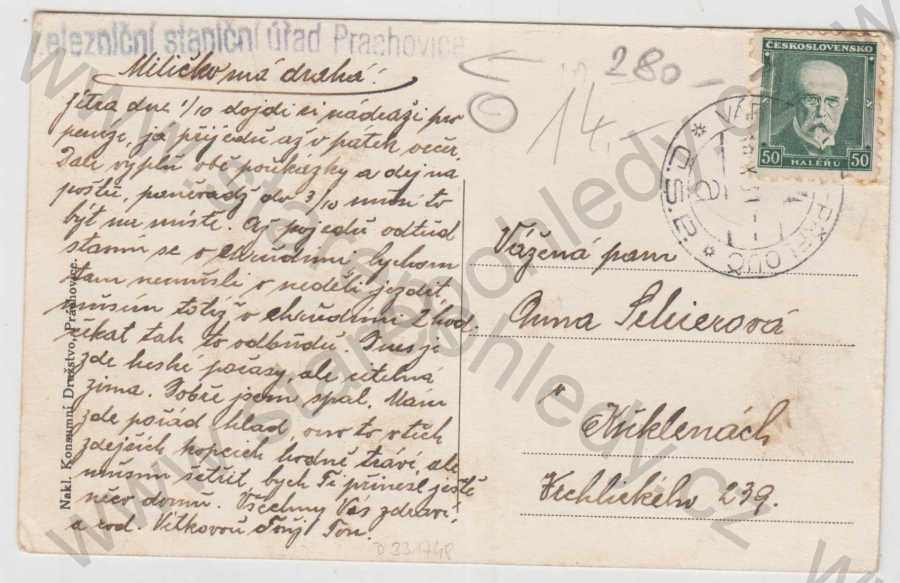 železniční staniční úřad Prachovice
Miličko má drahá!
Jitra dne 1/10 dojdi si nádraží pro
peníze, já přijedu až v pátek večer.
Pak vyplň obě poukázky a dej na
poštu, do 3/10 musí to
být na místě. Až pojedu odtud
stavím se v Chrudimi, bychom
tam nemusili v neděli jezdit,
musím totiž v Chrudimi 2 hod.
čekat tak to odbudu. Dnes je
zde hezké počasí, ale citelná
zima. Dobře jsem spal. Mám
zde pořád hlad, ono to v těch
zdejších kopcích hodně tráví, ale
musím šetřit, bych Ti přinesl ještě
něco domů. Všechny Vás zdraví
a Tvůj Ton.
Nakl. Konsumní Družstvo, Prachovice.
280
14.-
ČESKOSLOVENSKO
50 HALÉŘŮ 50
Vážená paní
Anna
v
Kuklenách
Vrchlického 239.
D 331748
www.starepohledy.cz